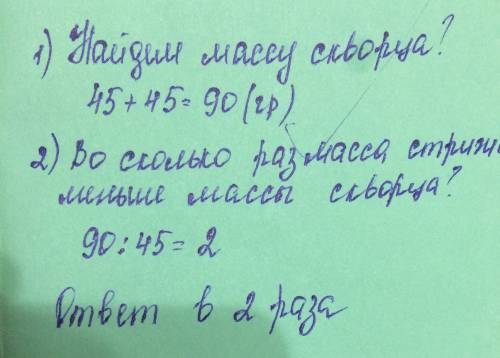 1) Найдем массу скворца?
45+45=90(гр)
2) Во сколько раз масса стрижа
меньше массы скворца?
90:45=2
Ответ в 2 раза